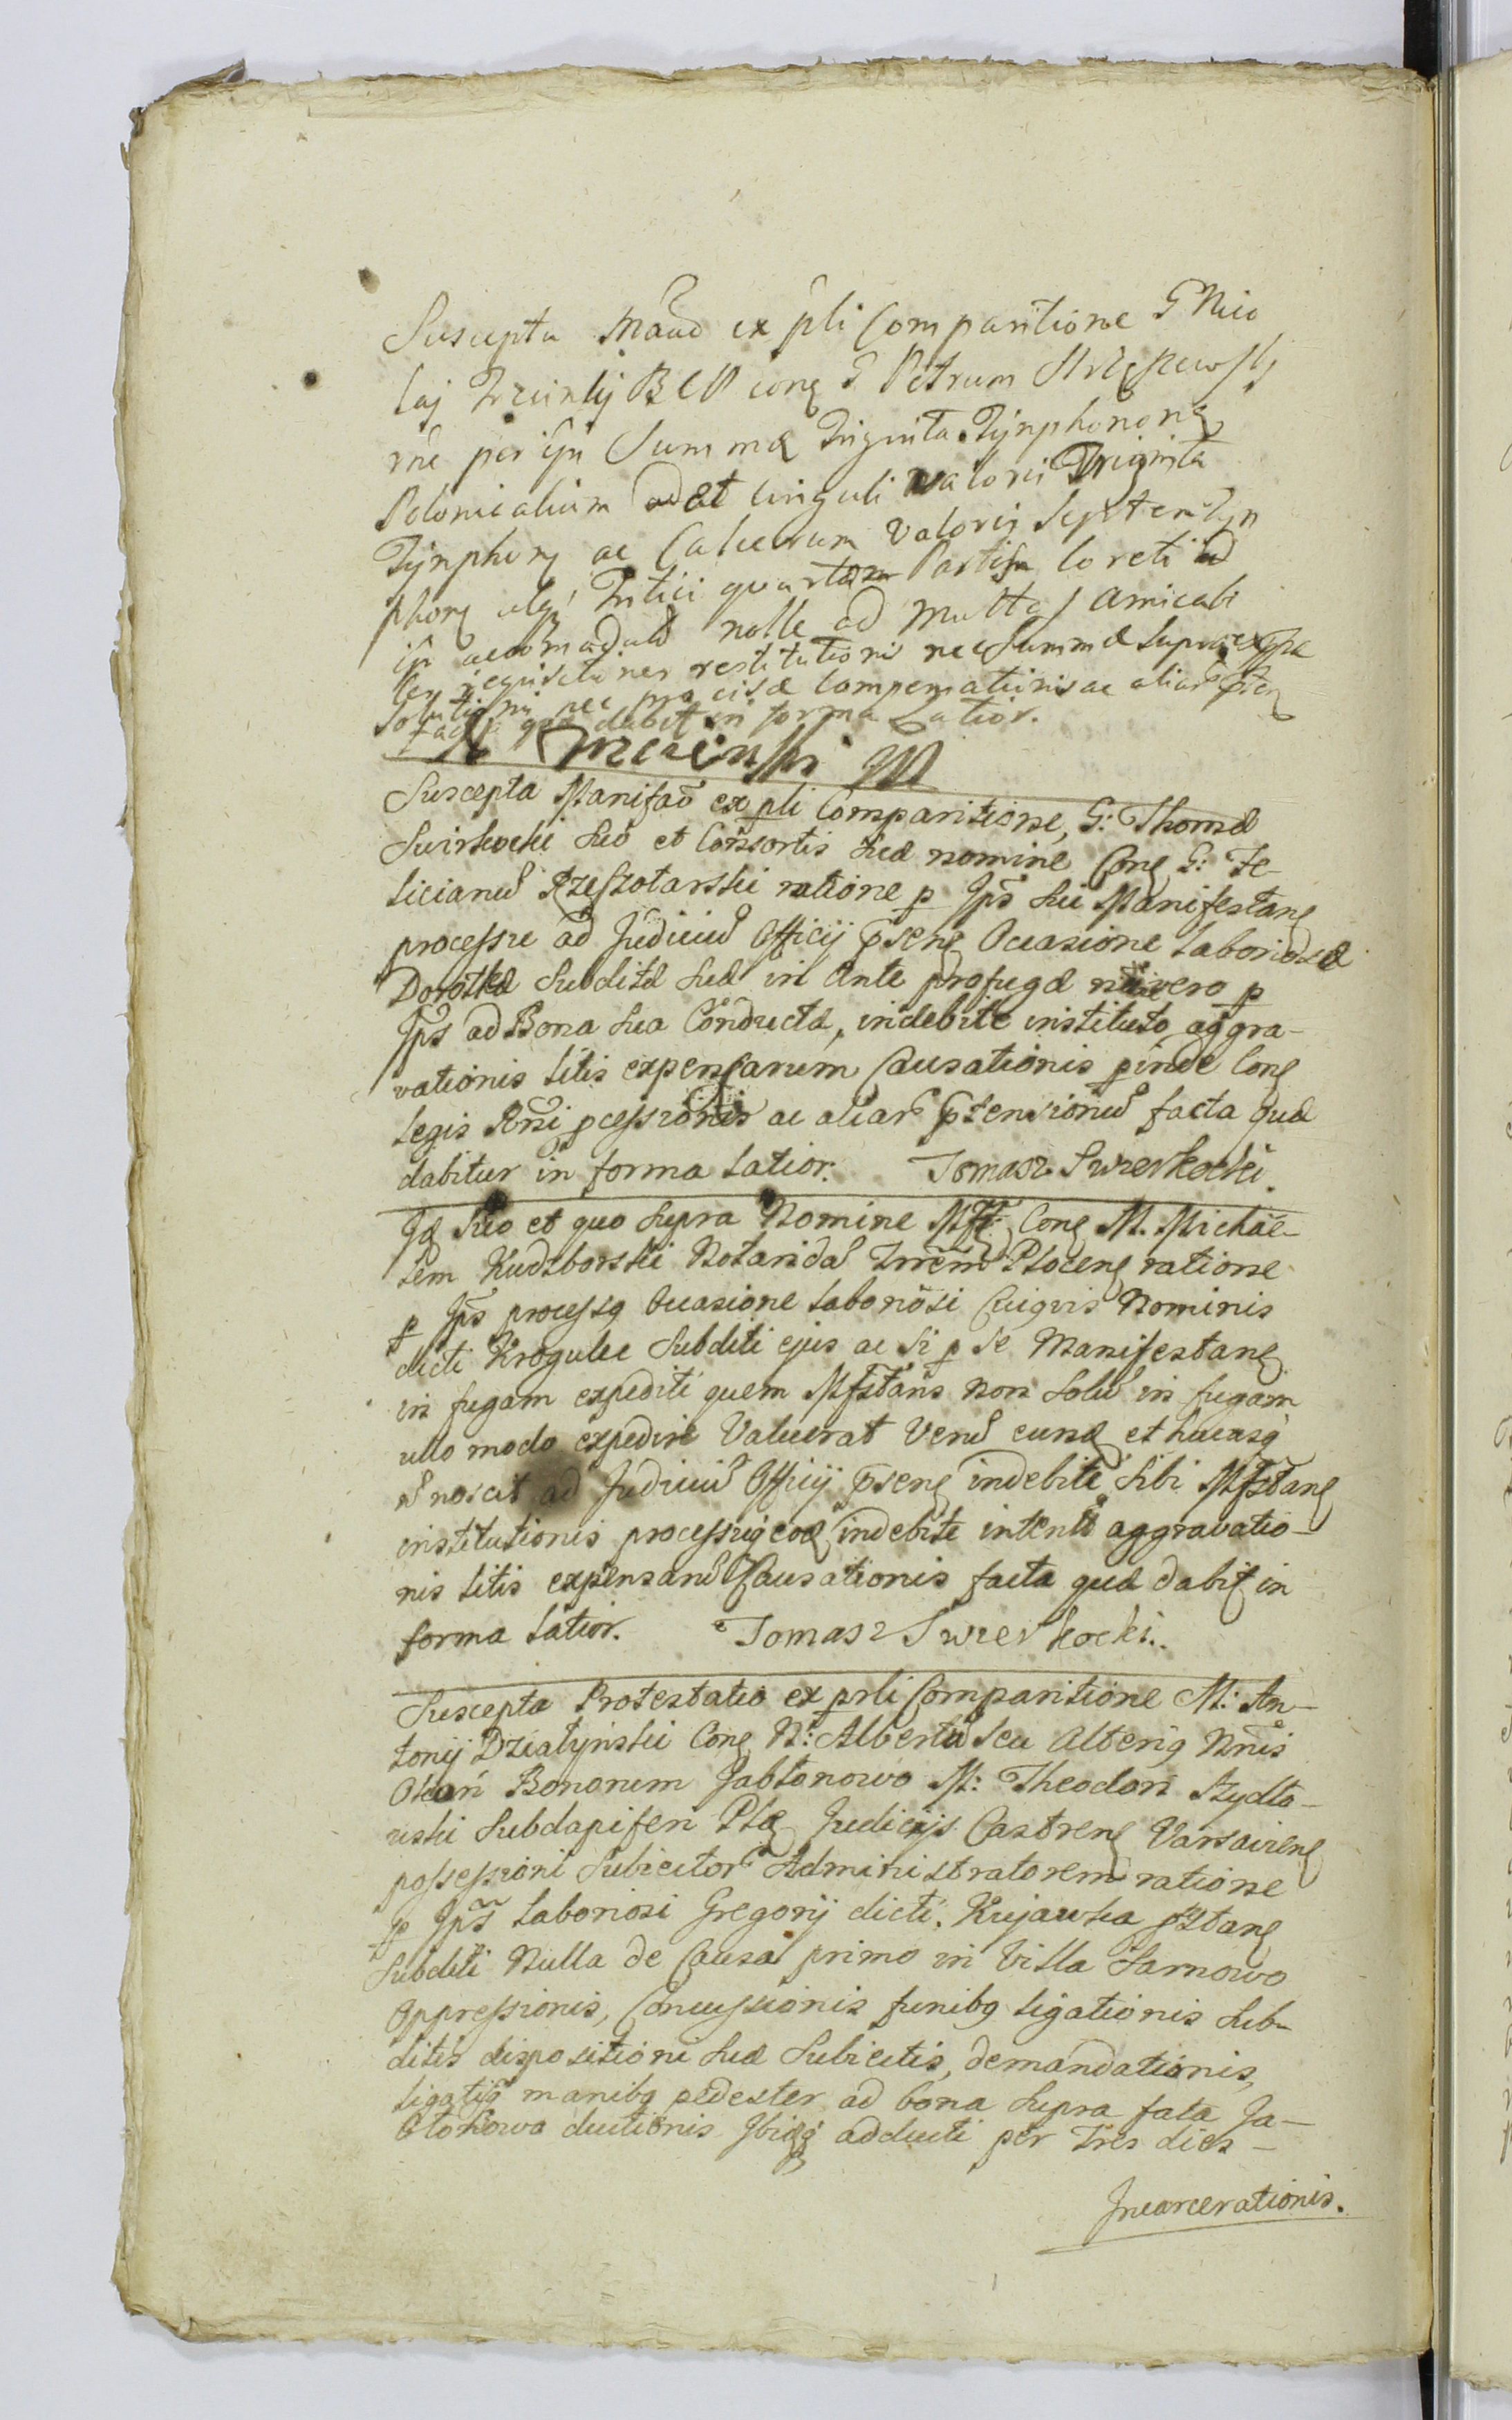 Suscepta Mand ex pli Comparitione G Nico
laj Trcinskj B C P conq G Petrum
rne per ipn Summæ Triginta Tÿnphonorq
Polonicalium adat singuli valoris Triginta
Tÿnphonq ac Calcearum valoris Septem Tÿn
phonq alqs Tritici quartam Partis loreti ad
ipn nolle ad Multas amicabi
les requisitiones restitutionis nec Summæ supra expræ
solutionis nec præcisæ compensationis ac aliarũ pten
facta quæ dabit in forma Latior.
Trzcinski
Suscepta Manifaõ ex pli Comparitione, G: Thomæ
Swirskocki Suõ et Consortis Suæ nomine Conq G: Fe-
licianũ Rzeszotarski ratione p Jps Sui Manifestanq
processu ad Judiciũ Officij psenq Occasione Laboriosæ
Dorothæ Subditæ Suæ in Ante profugæ nũc vero p
Jps ad Bona sua Conductæ, indebite instituto, aggra-
vationis litis expensarum Causationis pinde Conq
Legis Rni pcessionis ac aliarũ ptensionũ facta quæ
dabitur in forma latior. Tomasz Swierskocki.
Jd Suo et quo supra Nomine Mft. Conq M. Michae-
lem Kudzborski Notariũ Trrem Plocenq ratione
p Jps processq Occasione laboriosi Cuiqvis Nominis
dicti Krogulec Subditi ejus ac si p se Manifestanq
in fugam expediti quem Mfstans non solũ in fugam
ullo modo expedire Valuerat Verũ eund et hucusq
ñ noscit ad Judiciũ Officij psenq indebite sibi Mfstanq
institutionis processusq eod indebite intenti aggravatio-
nis litis expensarũ Causationis facta quæ dabit in
forma latior. Tomasz Swierskocki.
Suscepta Protestatio ex prli Comparitione M: An-
tonij Dziatynski Conq N: Albertũ seu alteriq Nnis
Bonorum Jabtonowo M: Theodori Szydto-
wski Subdapiferi Plq Judicijs Castrenq Varsavienq
possessioni Subiectorũ Administratorem ratione
p Jps laboriosi Gregorij dicti Kujawka pstanq
Subditi Nulla de Causa primo in Villa Sarnowo
Oppressionis, Concussionis funibq ligationis Sub-
ditis dispositioni suæ Subiectis, demandationis,
ligatisq manibq pedester ad bona supra fata Ja-
btonowo ductionis Jbiqq adducti per Tres dies-
Jncarcerationis.